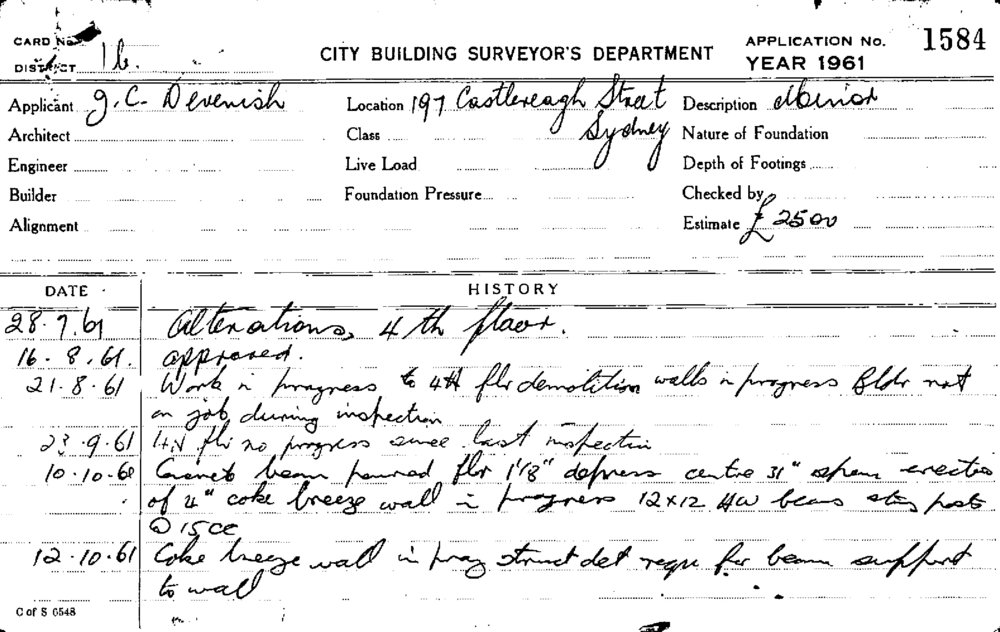 CARD No.
DISTRICT 16.
CITY BUILDING SURVEYOR'S DEPARTMENT
APPLICATION No. 1584
YEAR 1961
Applicant J. C. Devenish
Location 197 Castlereagh Street Sydney
Description Minor
Architect
Class
Nature of Foundation
Engineer
Live Load
Depth of Footings
Builder
Foundation Pressure
Checked by
Alignment
Estimate £ 2500
DATE
HISTORY
28.7.61 Alterations, 4th floor.
16.8.61. approved.
21.8.61 Work in progress to 4th flr demolition walls in progress Bldr not
on job during inspection
23.9.61 4th flr no progress since last inspection
10.10.61 beam poured flr 1'/8" centre 31"
of 4" coke breeze wall in progress 12x12 HW beams posts
@ 15CC
12.10.61 Coke breeze wall in prog struct det requ for beam support
to wall
C of S 6548